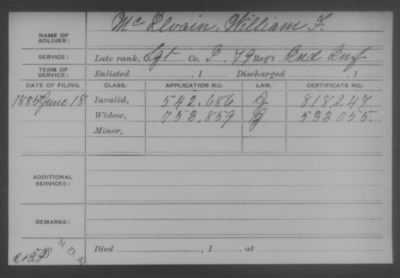 NAME OF SOLDIER: McElvain, William F.
SERVICE: Late rank, Sgt Co. I, 79 Reg't Ind Inf
TERM OF SERVICE: Enlisted , 1 Discharged , 1
DATE OF FILING. CLASS. APPLICATION NO. LAW. CERTIFICATE NO.
1886 June 18 Invalid, 542.686 818247
Widow, 753,859 533055
Minor,
ADDITIONAL SERVICES:
REMARKS:
Died , 1 , at